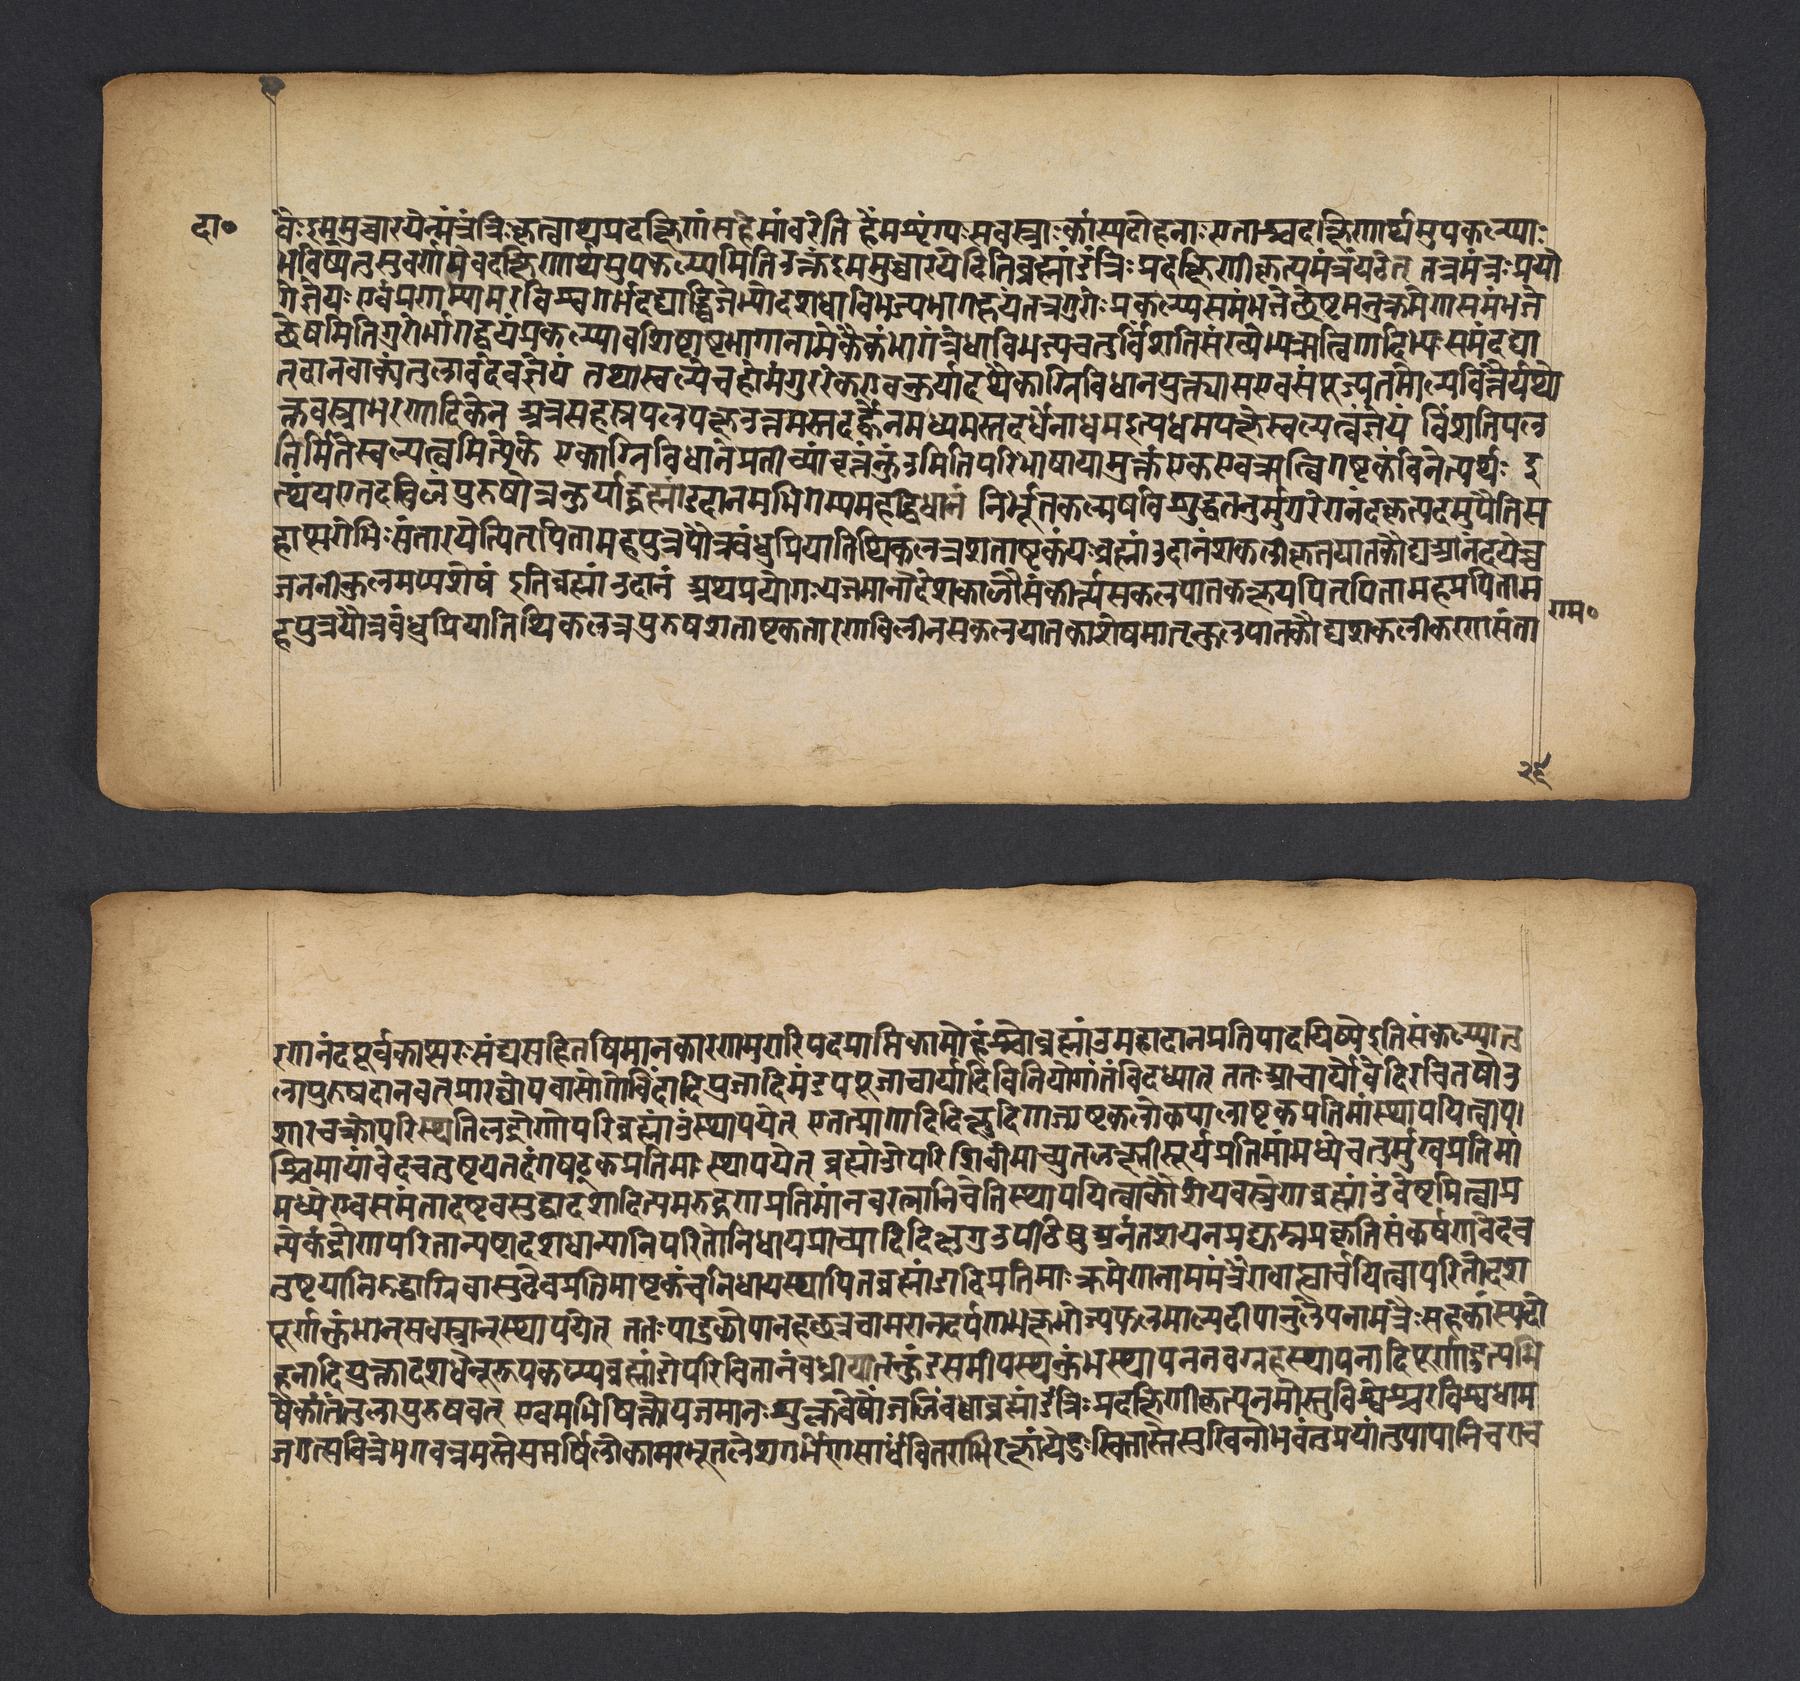 दा०
वैः इममुच्चारयेन्मंत्रं त्रिः कृत्वाथ प्रदक्षिणां सहेमांबरेति हेमशृंग्यः सवस्त्राः कांस्यदोहनाः एताश्च दक्षिणार्थमुपकल्प्याः
भविष्ये तु सुवर्णमेव दक्षिणार्थमुपकल्प्यमिति उक्तं इममुच्चारयेदिति ब्रह्मांडं त्रिः प्रदक्षिणीकृत्य मंत्रं पठेत् तत्र मंत्रः प्रयो
गे ज्ञेयः एवं प्रणम्यामरविश्वगर्भं दद्याद्द्विजेभ्यो दशधा विभज्य भागद्वयं तत्र गुरोः प्रकल्प्य समं भजेच्छेषमनुक्रमेण समं भजे
च्छेषमिति गुरोर्भागद्वयं प्रकल्प्यावशिष्टाष्टभागानामेकैकं भागं त्रेधा विभज्य चतुर्विंशतिसंख्येभ्य ऋत्विगादिभ्यः समं दद्या
त् दानवाक्यं तुलावदेव ज्ञेयं तथा स्वल्पे च होमं गुरुरेक एव कुर्यादथैकाग्निविधानयुक्त्या स एव संपूज्यतमोल्पवित्तैर्यथो
क्तवस्त्राभरणादिकेन अत्र सहस्रपलपक्ष उत्तमस्तदर्द्धेन मध्यमस्तदर्धेनाधम इत्यधमपक्षे स्वल्पत्वं ज्ञेयं विंशतिपल
निर्मिते स्वल्पत्वमित्येके एकाग्निविधानं प्रतीच्यां वृत्तं कुंडमिति परिभाषायामुक्तं एक एव ऋत्विगष्टकं विनेत्यर्थः इ
त्थं य एतदखिलं पुरुषोत्र कुर्याद्ब्रह्मांडदानमधिगम्य महद्विधानं निर्धूतकल्मषविशुद्धतनुर्मुरारेरानंदकृत्पदमुपैति स
हाप्सरोभिः संतारयेत्पितृपितामहपुत्रपौत्रबंधुप्रियातिथिकलत्रशताष्टकं यः ब्रह्मांडदानशकलीकृतपातकौघमानंदयेच्च
जननीकुलमप्यशेषं इति ब्रह्मांडदानं अथ प्रयोगः यजमानो देशकालौ संकीर्त्य सकलपातकक्षयपितृपितामहप्रपिताम
हपुत्रपौत्रबंधुप्रियातिथिकलत्रपुरुषशताष्टकतारणविलीनसकलपातकाशेषमातृकुलपातकौघशकलीकरणसंता
राम०
२६
रणानंदपूर्वकाप्सरः संघसहितविमानकरणमुरारिपदप्राप्तिकामोहं श्वो ब्रह्मांडमहादानं प्रतिपादयिष्ये इति संकल्प्य तु
लापुरुषदानवत् प्रारब्धोपवासो गोविंदादिपूजादिमंडपपूजाचार्यादिविनियोगांतं विदध्यात् ततः आचार्यो वेदिरचितषोड
शारचक्रोपरिस्थतिलद्रोणोपरि ब्रह्मांडं स्थापयेत् एतत्प्रागादिदिक्षु दिग्गजाष्टकलोकपालाष्टकप्रतिमां स्थापयित्वा प
श्चिमायां वेदचतुष्टयतदंगषट्कप्रतिमाः स्थापयेत् ब्रह्मांडोपरि शिवोमाच्युतलक्ष्मीसूर्यप्रतिमां मध्ये चतुर्मुखप्रतिमां
मध्य एव समंतादष्टवसुद्वादशादित्यमरुद्गणप्रतिमां नवरत्नानि चेति स्थापयित्वा कौशेयवस्त्रेण ब्रह्मांडं वेष्टयित्वा प्र
त्येकं द्रोणपरितान्यष्टादशधान्यानि परितो निधाय प्राच्यादिदिक्षु गुडपीठेषु अनंतशयनप्रद्युम्नप्रकृतिसंकर्षणवेदच
तुष्टयानिरुद्धाग्निवासुदेवप्रतिमाष्टकं च निधाय स्थापितब्रह्मांडादिप्रतिमाः क्रमेण नाममंत्रैरावाह्यार्चयित्वा परितो दश
पूर्णकुंभान् सवस्त्रान् स्थापयेत् ततः पादुकोपानहछत्रचामरासनदर्पणभक्ष्यभोज्यफलमाल्यदीपानुलेपनाममंत्रैः सहकांस्यदो
हनादियुक्ता दशधेनूरुपकल्प्य ब्रह्मांडोपरि वितानं बध्नीयात् कुंडसमीपस्थकुंभस्थापननवग्रहस्थापनादिपूर्णाहुत्यभि
षेकांतं तुलापुरुषवत् एवमभिषिक्तो यजमानः शुक्लवेषोंजलिं बध्वा ब्रह्मांडं त्रिः प्रदक्षिणीकृत्य नमोस्तु विश्वेश्वर विश्वधाम
जगत्सवित्रे भगवन्नमस्ते सप्तर्षिलोकामरभूतलेश गर्भेण सार्धं वितराभिरक्षां ये दुःखितास्ते सुखिनो भवंतु प्रयांतु पापानि चराच